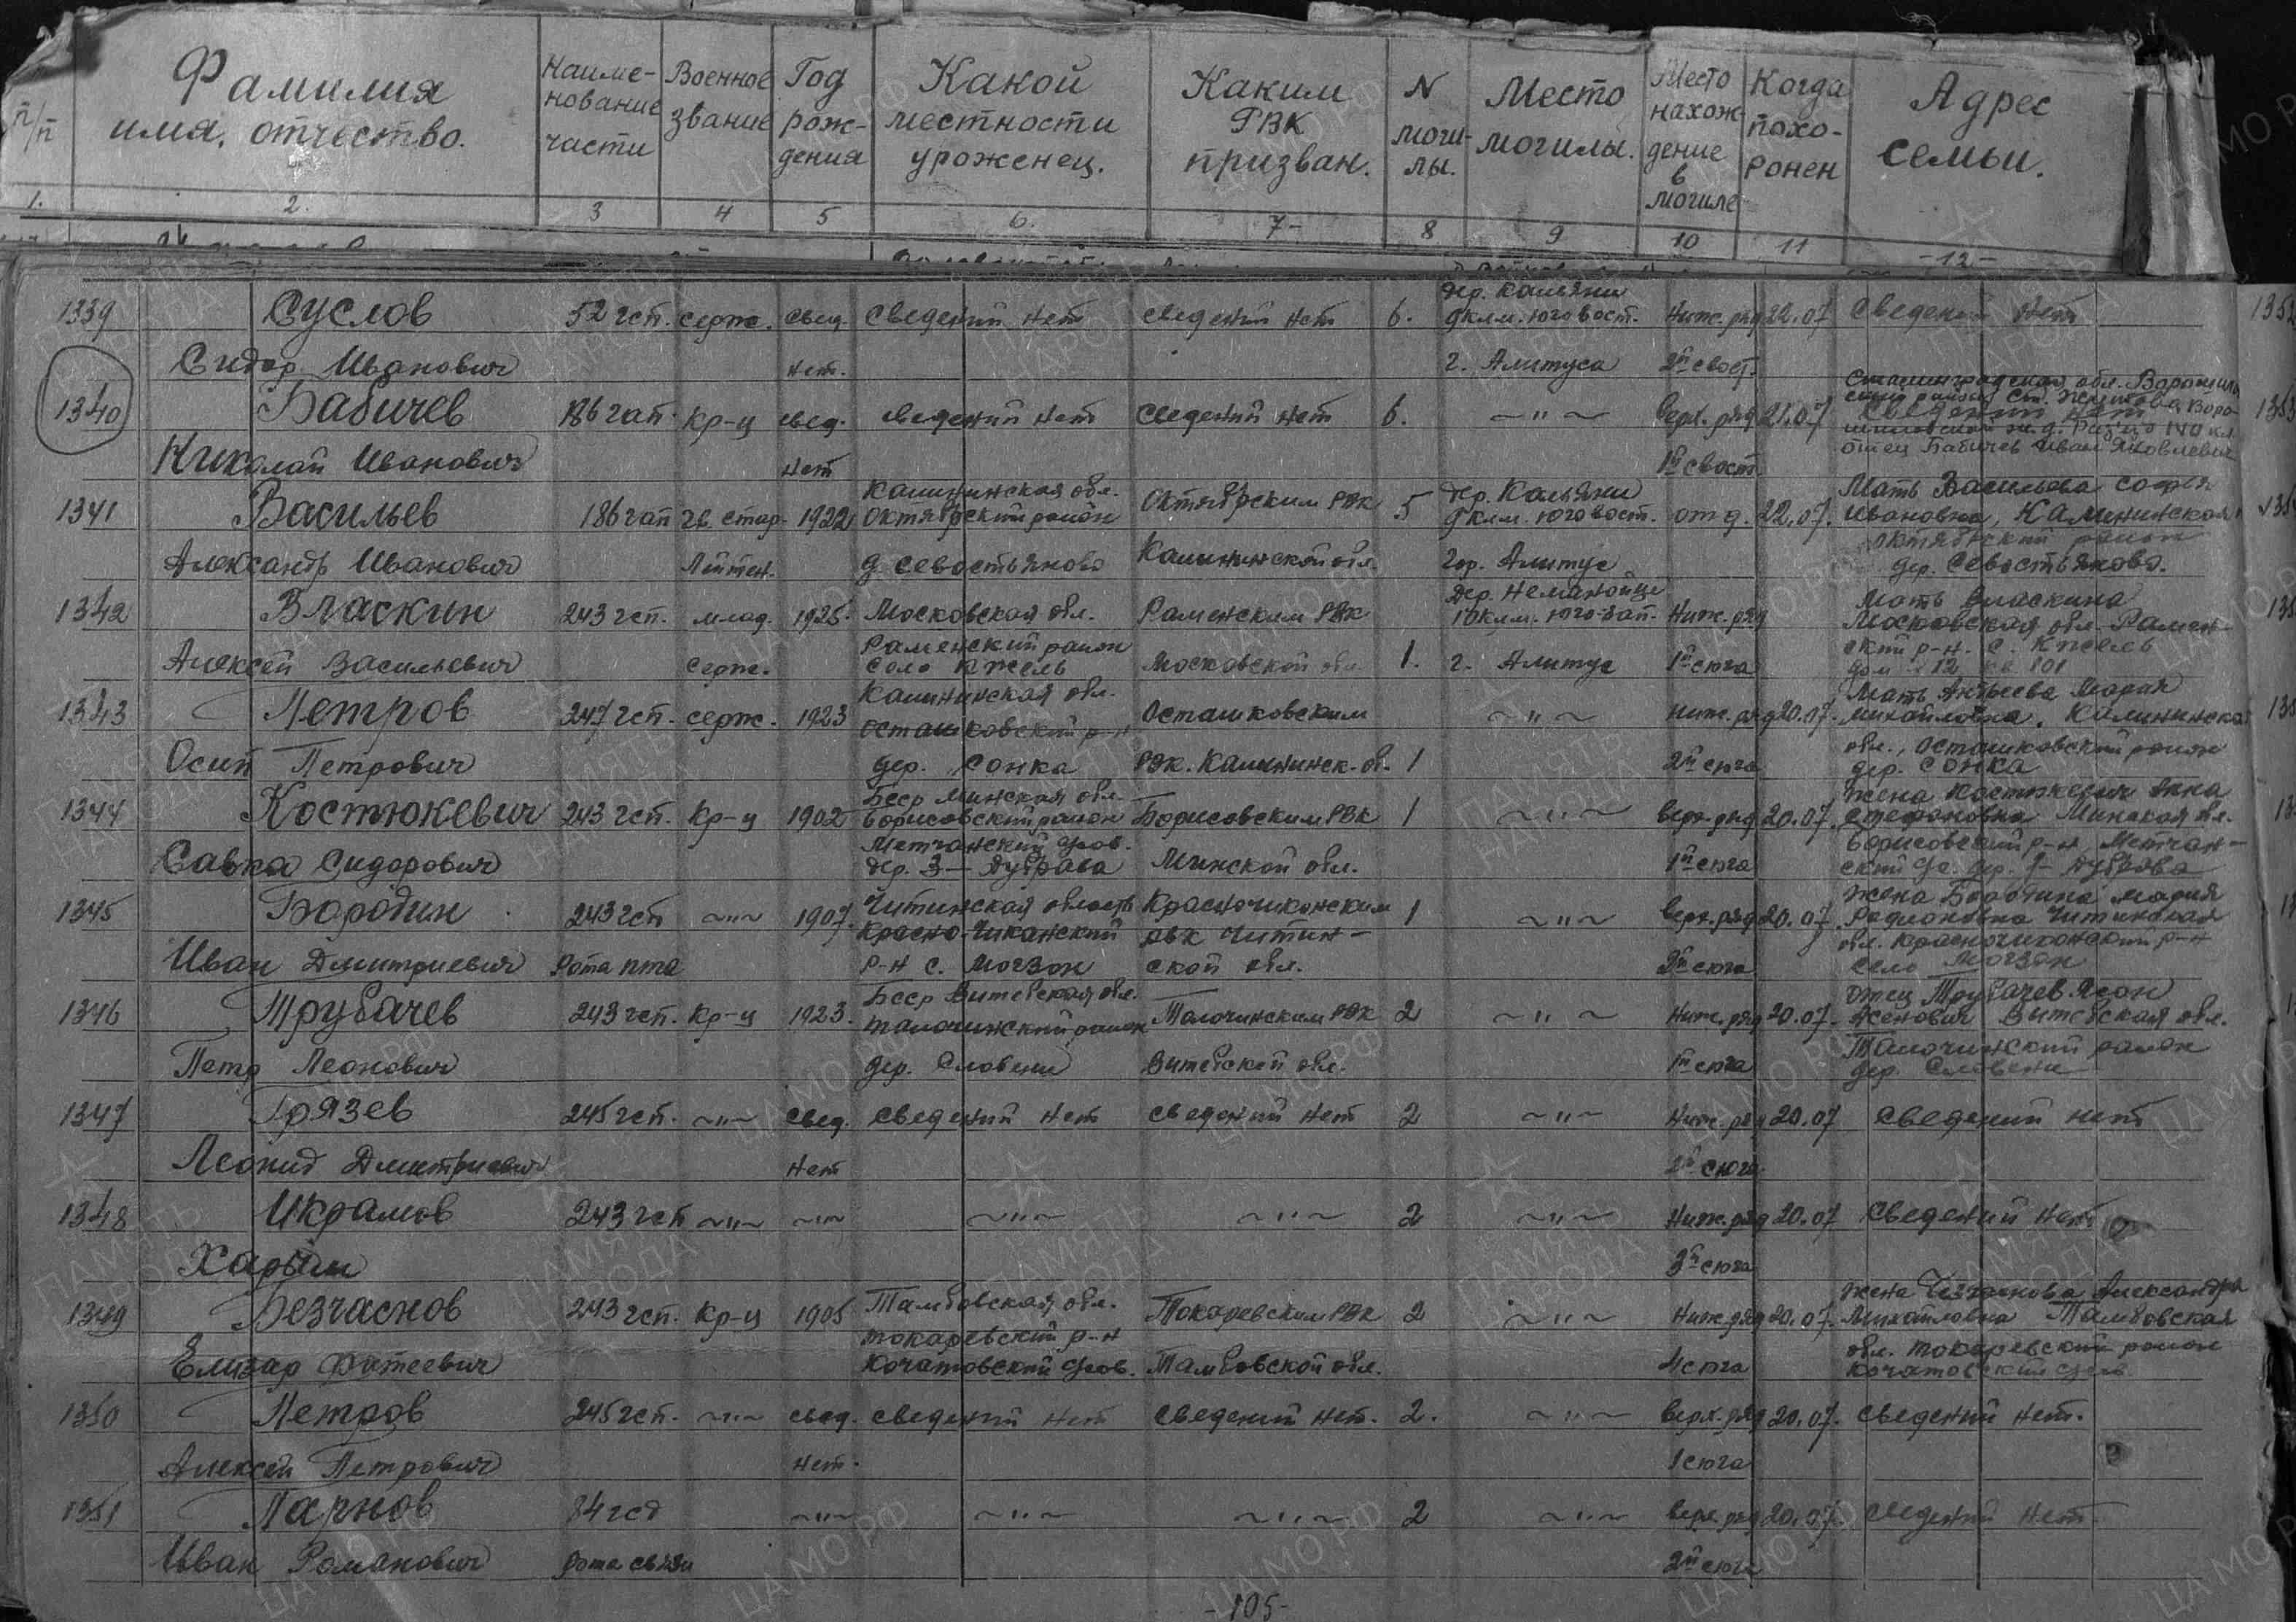 п/п
Фамилия
имя, отчество.
Наиме-
нование
части
Военное
звание
Год
рож-
дения
Какой
местности
уроженец.
Каким
РВК
призван.
N
моги-
лы.
Место
могилы.
Место
нахож-
дение
в
могиле
Когда
похо-
ронен
Адрес
семьи.
1. 2. 3 4 5 6. 7- 8 9 10 11 -12-
дер. Кальяни
1339 Суслов 52 гсп. серж. свед. сведений нет сведений нет 6. 9 клм. юговост. Ниж. ряд 22.07 Сведений нет
Сидор Иванович нет. г. Алитуса 2й с вост.
Сталинградская обл.
1340 Бабичев 186 гап. Кр-ц свед. сведений нет сведений нет 6. ~"~ верх. ряд 21.07 сведений нет
Николай Иванович нет 1й с вост. отец Бабичев Иван Яковлевич
Калининская обл. дер. Кальяни Мать Васильева Софья
1341 Васильев 186 гап гв. стар. 1922 Октябрский район Октябрским РВК 5 9 клм. юговост. отд. 22.07. Ивановна, Калининская
октябрский район
Александр Иванович Лейтен. д. Севостьяново Калининской обл. гор. Алитус дер. Севостьяново.
дер. Неманойце Мать Власкина
1342 Власкин 243 гсп. млад. 1925. Московская обл. Раменским РВК 10 клм. юго-зап. Ниж. ряд Московская обл. Рамен-
Раменский район ский р-н. с. Кжель
Алексей Васильевич серж. село Кжель Московской обл. 1. г. Алитус 1й с юга дом 12 кв 101
Калининская обл. Мать Антьева Мария
1343 Петров 247 гсп. серж. 1923 осташковский р-н Осташковским ~"~ ниж. ряд 20.07. Михайловна. Калининская
обл., Осташковский район
Осип Петрович дер. Сонка РВК. Калининск. об. 1 2й с юга дер. Сонка
Бсср Минская обл. Жена Костюкевич Анна
1344 Костюкевич 243 гсп. Кр-ц 1902 Борисовский район Борисовским РВК 1 ~"~ верх. ряд 20.07. Стефановна Минская обл.
Метчанский с/сов. Борисовский р-н, Метчан-
Савка Сидорович дер. З-Дуброва Минской обл. 1й с юга ский с/с. дер. З-Дуброва
Жена Бородина Мария
1345 Бородин 243 гсп ~"~ 1907. Читинская область Красночикойским 1 ~"~ верх. ряд 20.07. Родионовна Читинская
Красно-Чикойский рвк Читин- обл. Красночикойский р-н
Иван Дмитриевич Рота пта р-н с. Могзон ской обл. 2й с юга село Могзон
Бсср Витебская обл. Отец Трубачев Леон
1346 Трубачев 243 гсп. Кр-ц 1923. толочинский район Толочинским РВК 2 ~"~ Ниж. ряд 20.07. Ясенович Витебская обл.
Толочинский район
Петр Леонович дер. Словени Витебской обл. 1й с юга дер. Словени
1347 Грязев 245 гсп. ~"~ свед. сведений нет сведений нет 2 ~"~ Ниж. ряд 20.07 сведений нет
Леонид Дмитриевич нет 2й с юга
1348 Икрамов 243 гсп ~"~ ~"~ ~"~ ~"~ 2 ~"~ Ниж. ряд 20.07 Сведений нет
3й с юга
Тамбовская обл. Жена Безчаснова Александра
1349 Безчаснов 243 гсп. Кр-ц 1905 Токаревским РВК 2 ~"~ Ниж. ряд 20.07. Михайловна Тамбовская
токаревский р-н обл. Токаревский район
Елизар Фатеевич Кочатовский с/сов. Тамбовской обл. 4 с юга Кочатовский с/сов.
1350 Петров 245 гсп. ~"~ свед. сведений нет сведений нет. 2. ~"~ верх. ряд 20.07. Сведений нет.
Алексей Петрович нет. 1 с юга
1351 Парнов 84 гсд ~"~ ~"~ ~"~ 2 ~"~ верх. ряд 20.07 сведений нет.
Иван Романович рота связи 2й с юга
-105-